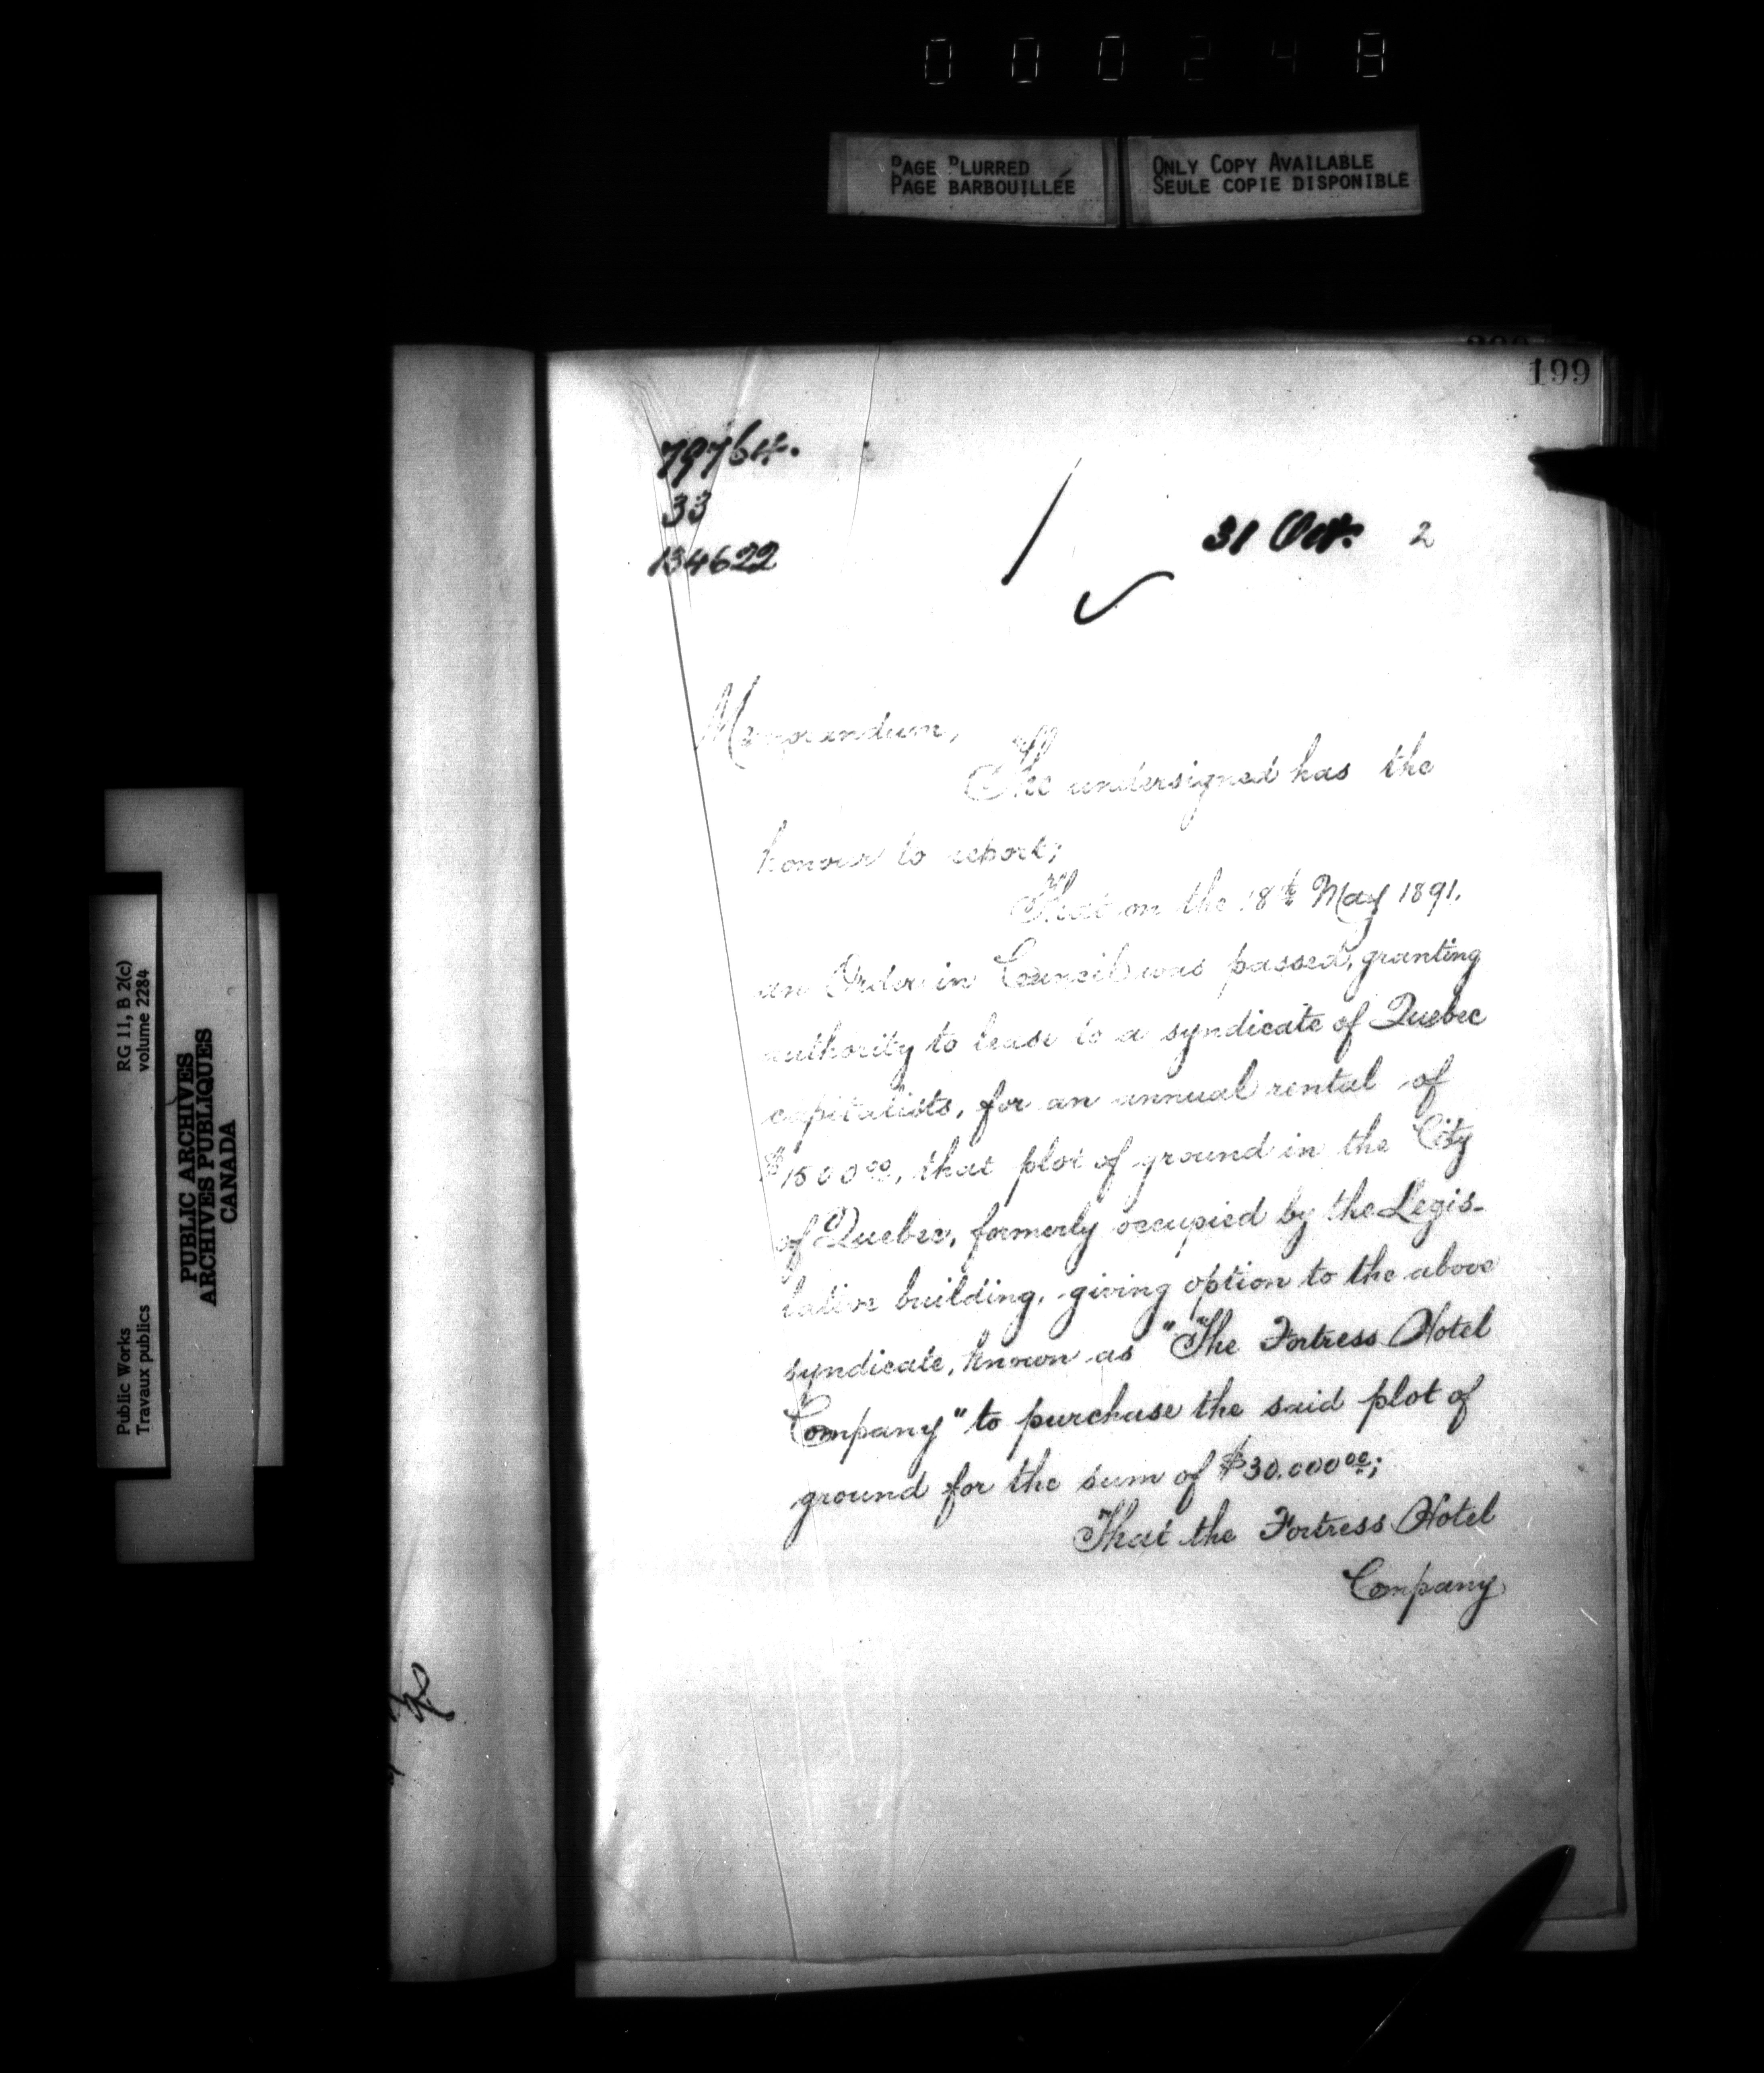 000248
PAGE BLURRED
PAGE BARBOUILLÉE
ONLY COPY AVAILABLE
SEULE COPIE DISPONIBLE
199
79764.
33
134622
31 Oct. 2
Memorandum,
The undersigned has the
honour to report;
That on the 18th May 1891.
an Order in Council was passed, granting
authority to lease to a syndicate of Quebec
capitalists, for an annual rental of
$1500.00, that plot of ground in the City
of Quebec, formerly occupied by the Legis-
lative building, giving option to the above
syndicate, known as "The Fortress Hotel
Company" to purchase the said plot of
ground for the sum of $30.000.00;
That the Fortress Hotel
Company
RG 11, B 2(c)
volume 2284
Public Works
Travaux publics
PUBLIC ARCHIVES
ARCHIVES PUBLIQUES
CANADA